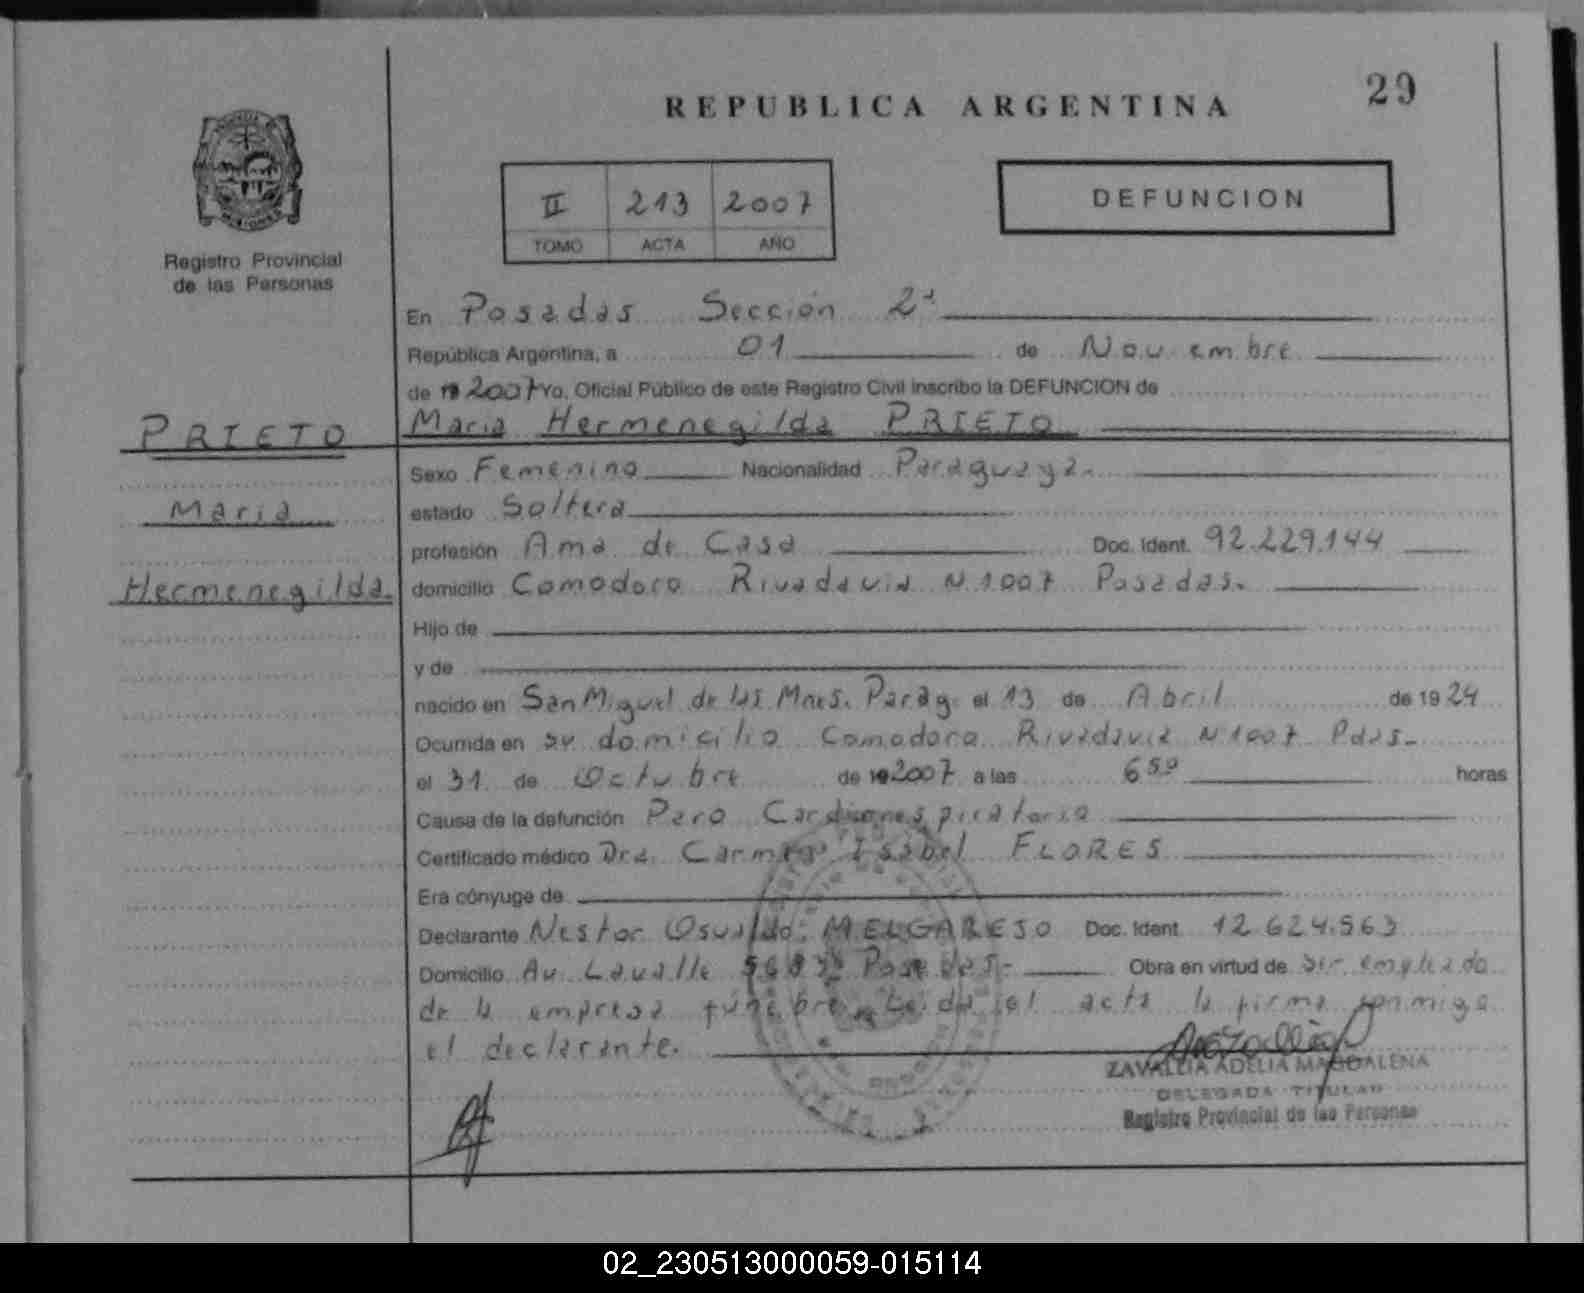 29
REPUBLICA ARGENTINA
II 213 2007
TOMO ACTA AÑO
DEFUNCION
Registro Provincial
de las Personas
En Posadas Sección 2ª
República Argentina, a 01 de Noviembre
de 19 2007 Yo, Oficial Público de este Registro Civil inscribo la DEFUNCION de
PRIETO
Maria Hermenegilda PRIETO
Sexo Femenino Nacionalidad Paraguaya.
Maria
estado Soltera
profesión Ama de Casa Doc. Ident. 92.229.144
Hermenegilda.
domicilio Comodoro Rivadavia N 1007 Posadas.
Hijo de
y de
nacido en San Miguel de las Mnes. Parag. el 13 de Abril de 1924
Ocurrida en su domicilio Comodoro Rivadavia N 1007 Pdas.
el 31 de Octubre de 19 2007 a las 6 50 horas
Causa de la defunción Paro Cardiorrespiratorio
Certificado médico Dra. Carmen Isabel FLORES
Era cónyuge de
Declarante Nestor Osvaldo MELGAREJO Doc. Ident. 12.624.563
Domicilio Av. Lavalle Posadas.- Obra en virtud de ser empleado
de la empresa fúnebre. Leída el acta la firma conmigo
el declarante.
ZAVALLIA ADELIA MAGDALENA
DELEGADA TITULAR
Registro Provincial de las Personas
02_230513000059-015114